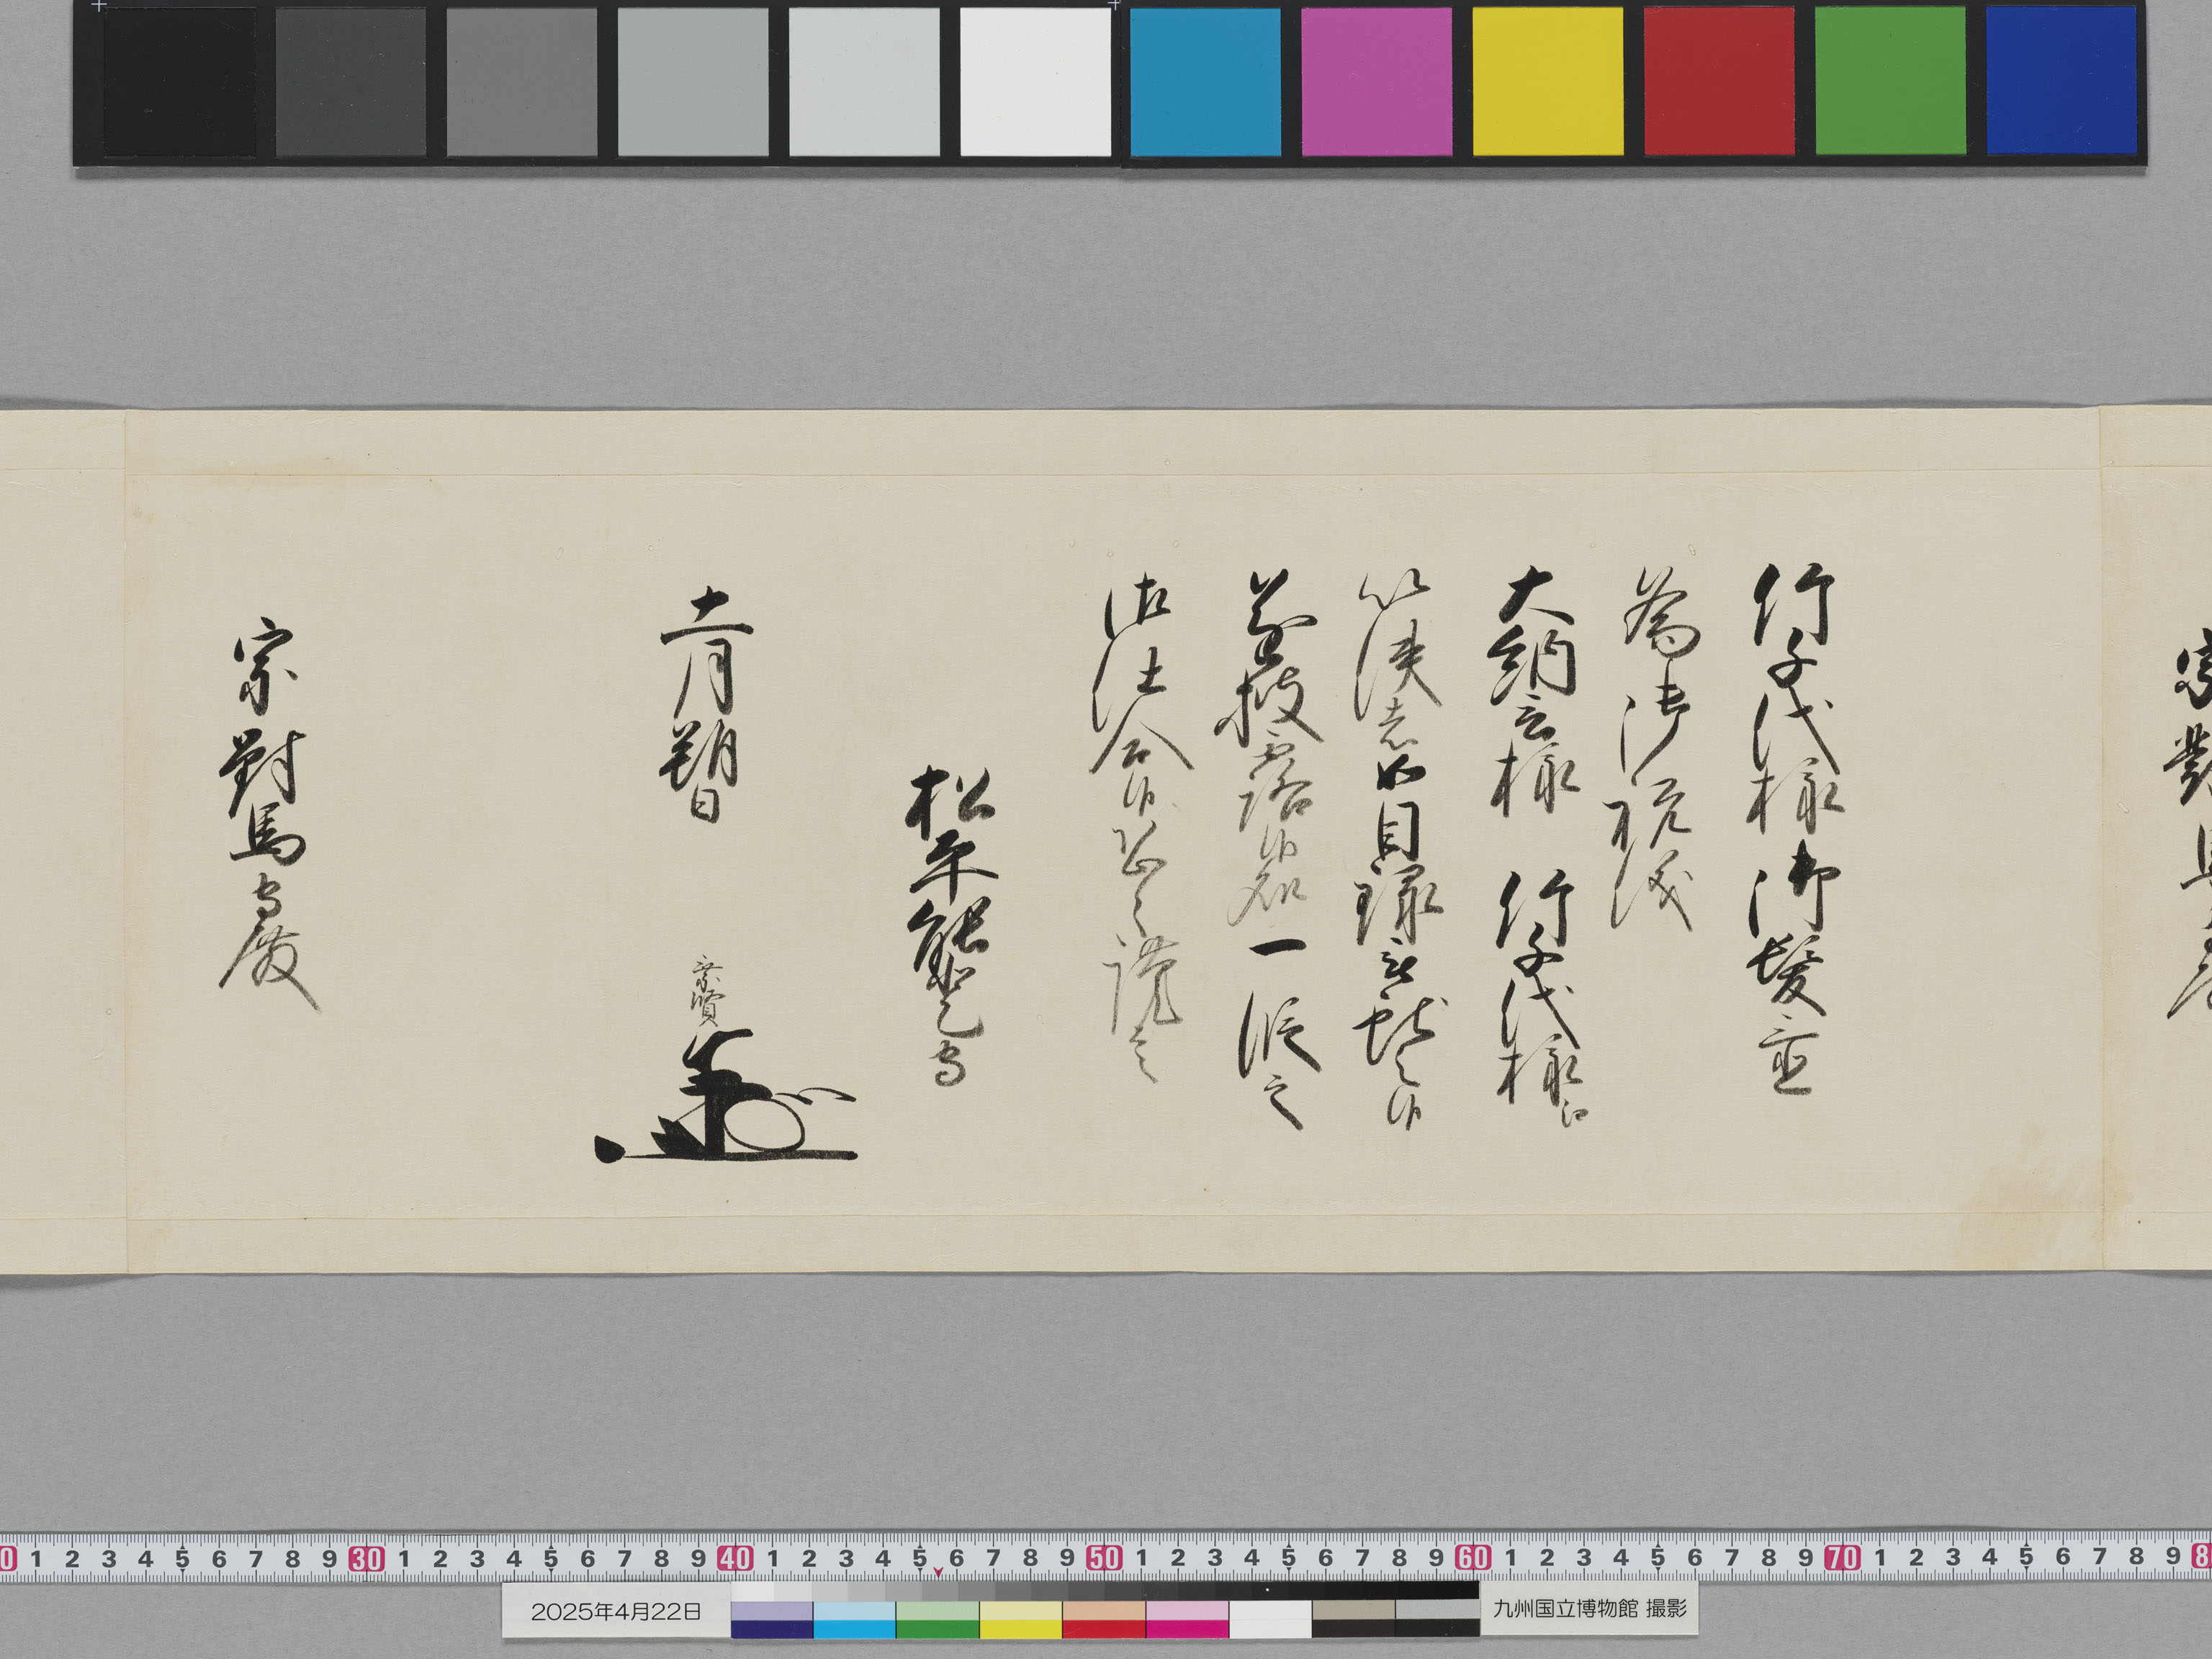 竹千代様御髪置
為御祝儀
大納言様 竹千代様江
以使者如目録被献之候
遂披露候処一段之
御仕合候恐々謹言
松平能登守
十一月朔日
乗賢
宗對馬守殿
0 1 2 3 4 5 6 7 8 9 30 1 2 3 4 5 6 7 8 9 40 1 2 3 4 5 6 7 8 9 50 1 2 3 4 5 6 7 8 9 60 1 2 3 4 5 6 7 8 9 70 1 2 3 4 5 6 7 8 9 8
2025年4月22日
九州国立博物館 撮影